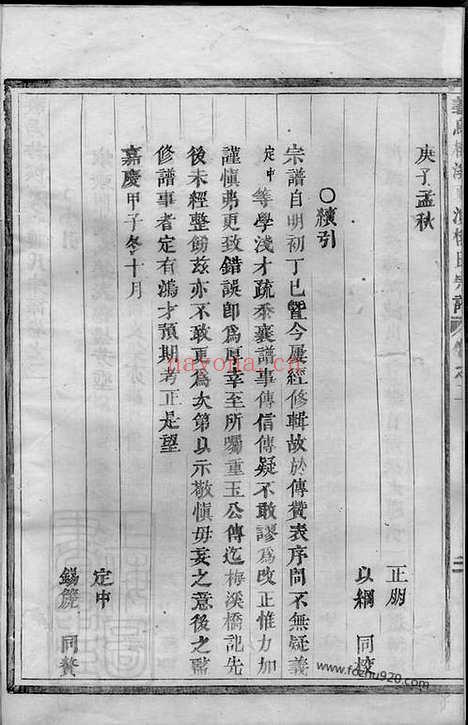 庚子孟秋
正朋
以綱 同校
○續引
宗譜自明初丁巳暨今屢經修輯故於傳贊表序問不無疑義
定中等學淺才疏忝襄譜事傳信傳疑不敢謬為改正惟力加
謹慎弗更致錯誤即為厚幸至所囑重玉公傳迄梅溪橋記先
後未經整飭茲亦不敢更為次第以示敬慎毋妄之意後之監
修譜事者定有鴻才預期考正是望
嘉慶甲子冬十月
定中
錫 同贊
nayona.cn
www.fozhu920.com